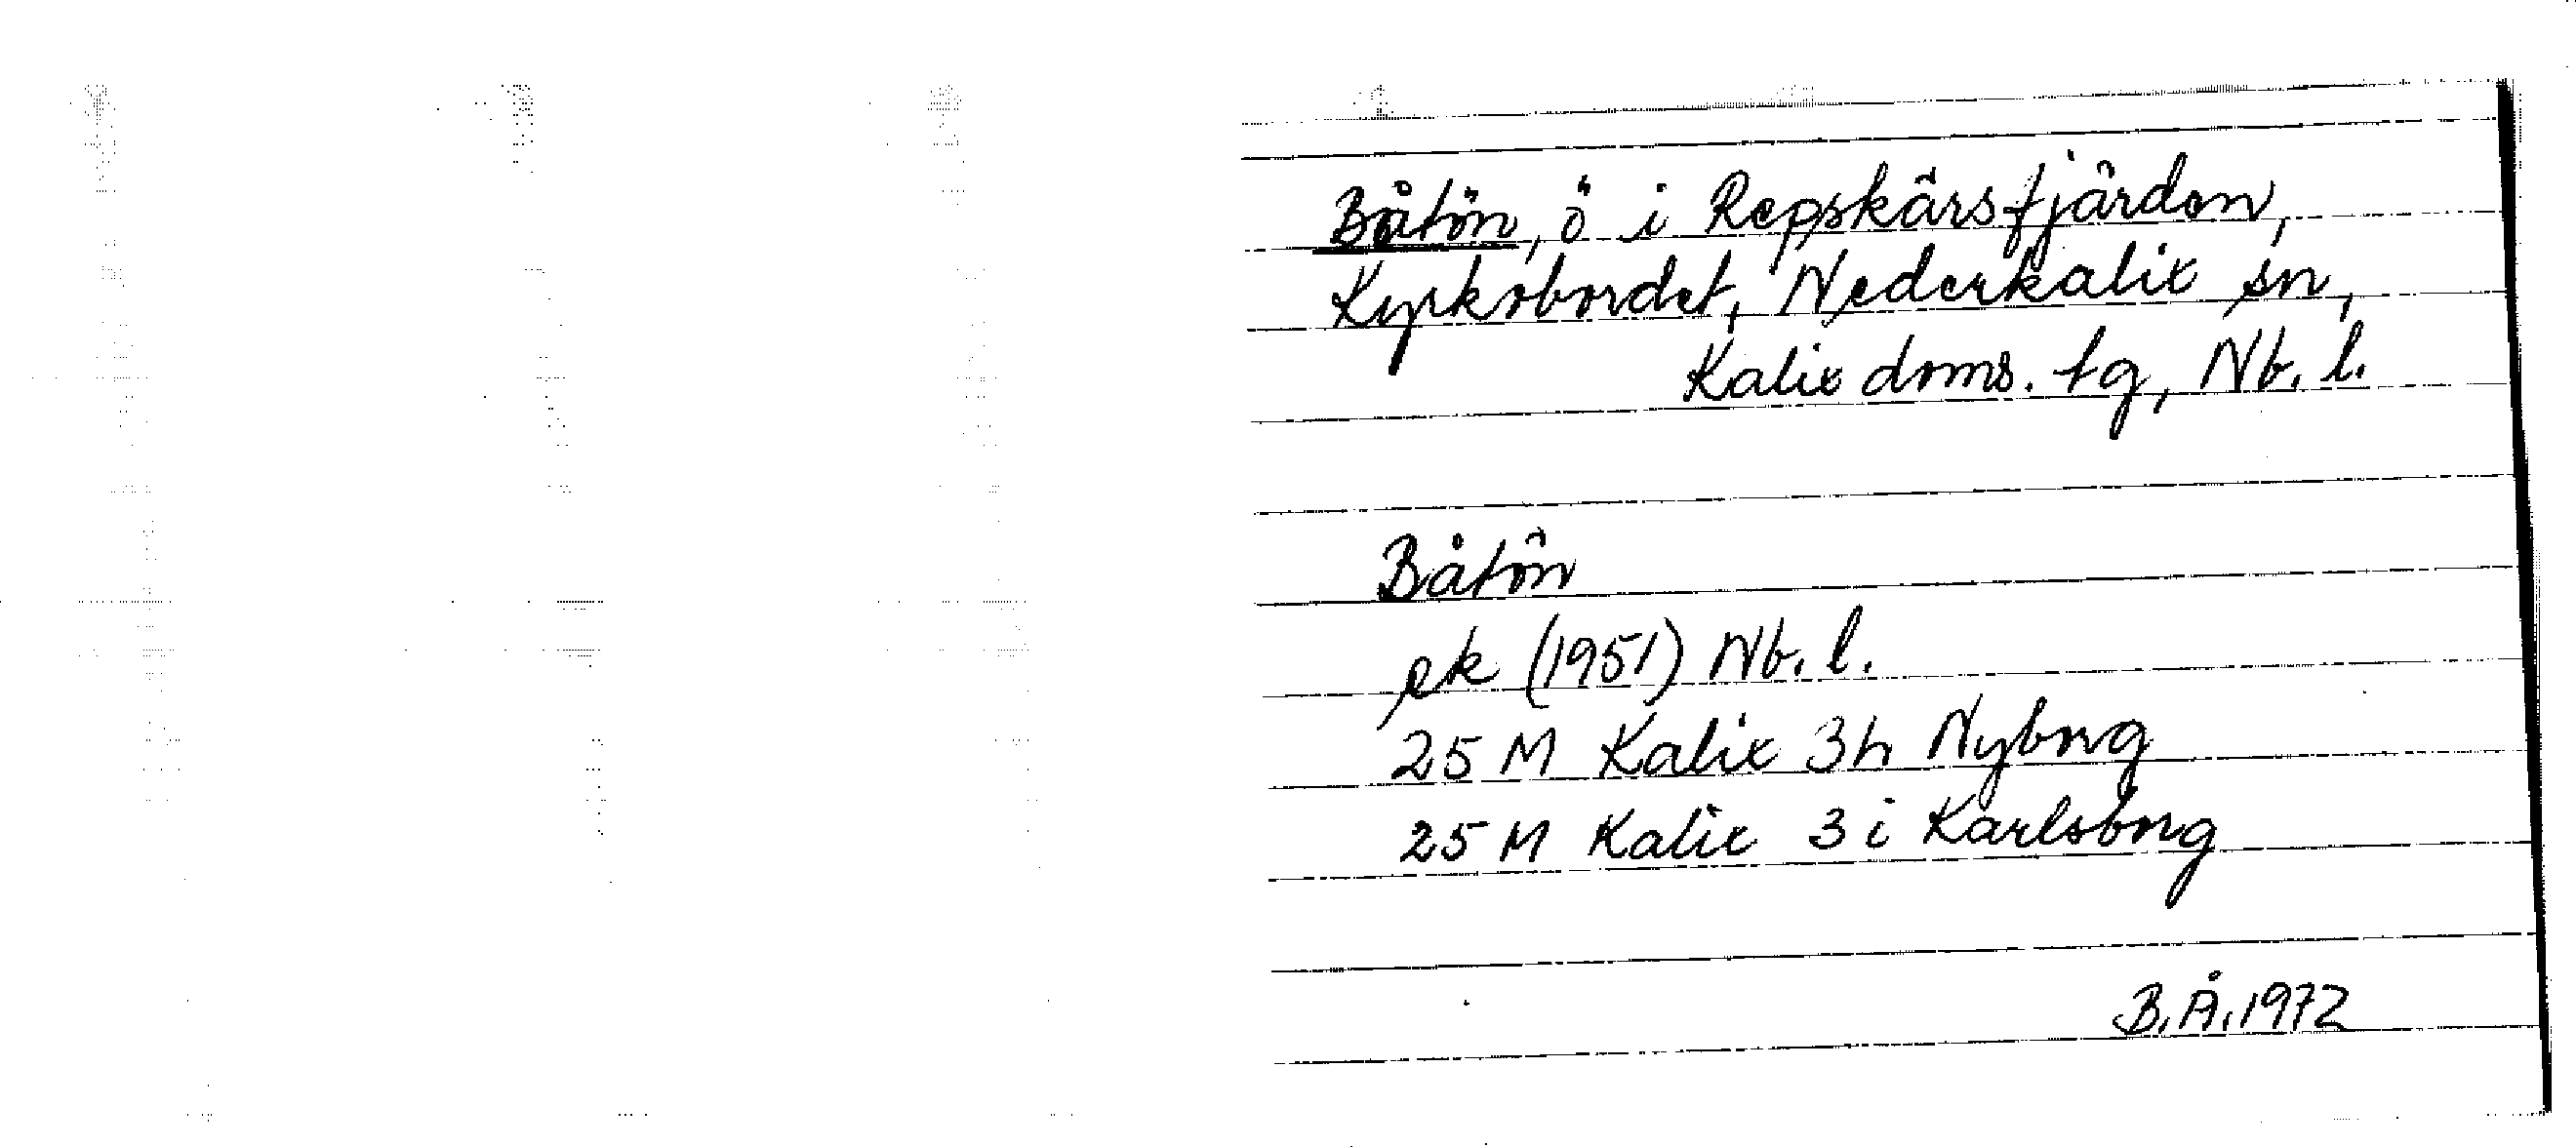 Båtön, ö i Repskärsfjärden,
Kyrkobordet, Nederkalix sn,
Kalix doms. tg, Nb. l.
Båtön
ek (1951) Nb. l.
25 M Kalix 3h Nyborg
25 M Kalix 3i Karlsborg
B.Å. 1972